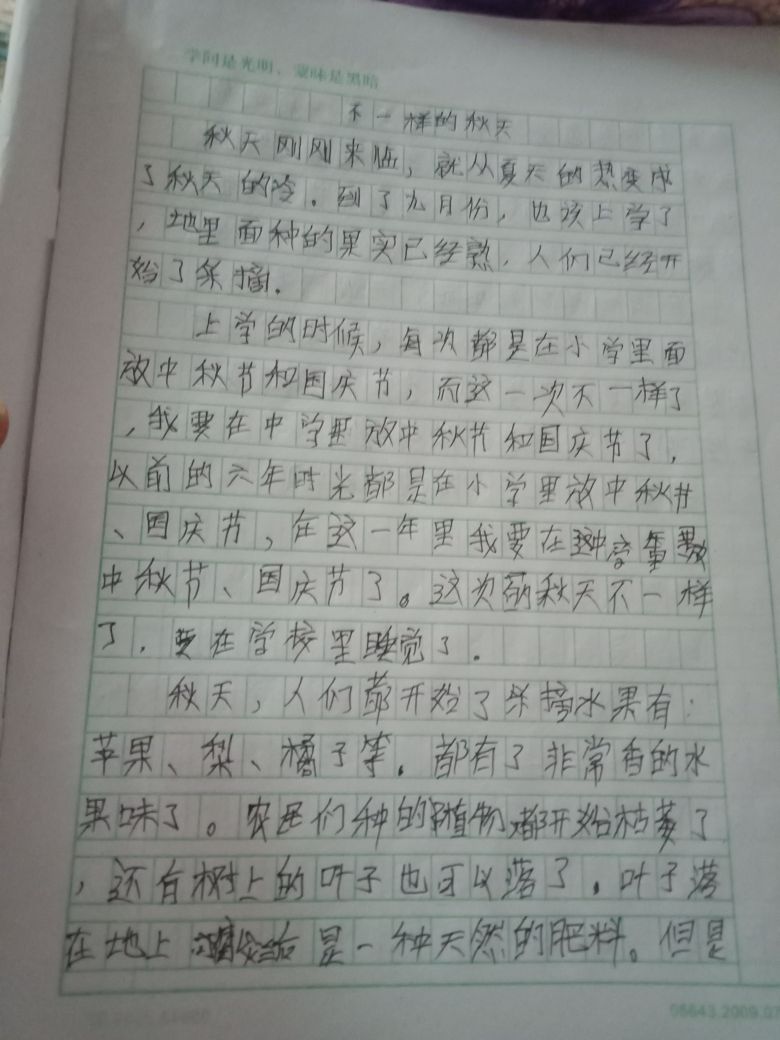 学问是光明、蒙昧是黑暗
不一样的秋天
秋天刚刚来临，就从夏天的热变成
了秋天的冷。到了九月份，也该上学了
，地里面种的果实已经熟，人们已经开
始了采摘.
上学的时候，每次都是在小学里面
放中秋节和国庆节，而这一次不一样了
，我要在中学里放中秋节和国庆节了，
以前的六年时光都是在小学里放中秋节
、国庆节，在这一年里我要在
中秋节、国庆节了。这次的秋天不一样
了，要在学校里睡觉了.
秋天，人们都开始了采摘水果有：
苹果、梨、橘子等. 都有了非常香的水
果味了。农民们种的植物都开始枯萎了
，还有树上的叶子也可以落了. 叶子落
在地上 是一种天然的肥料。但是
05643.2009.07